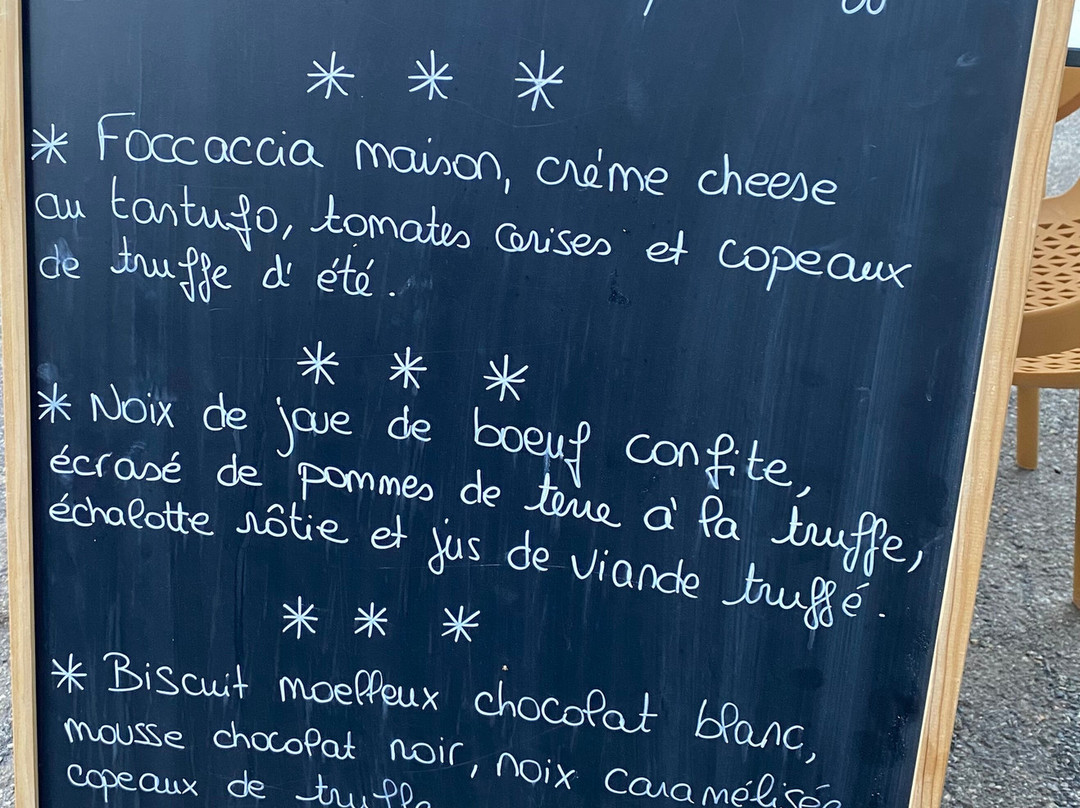 * * *
* Foccaccia maison, créme cheese
au tartufo, tomates cerises et copeaux
de truffe d'été.
* * *
* Noix de joue de boeuf confite,
écrasé de pommes de terre à la truffe,
échalotte rôtie et jus de viande truffé.
* * *
* Biscuit moelleux chocolat blanc,
mousse chocolat noir, noix caramélisée
copeaux de truffe